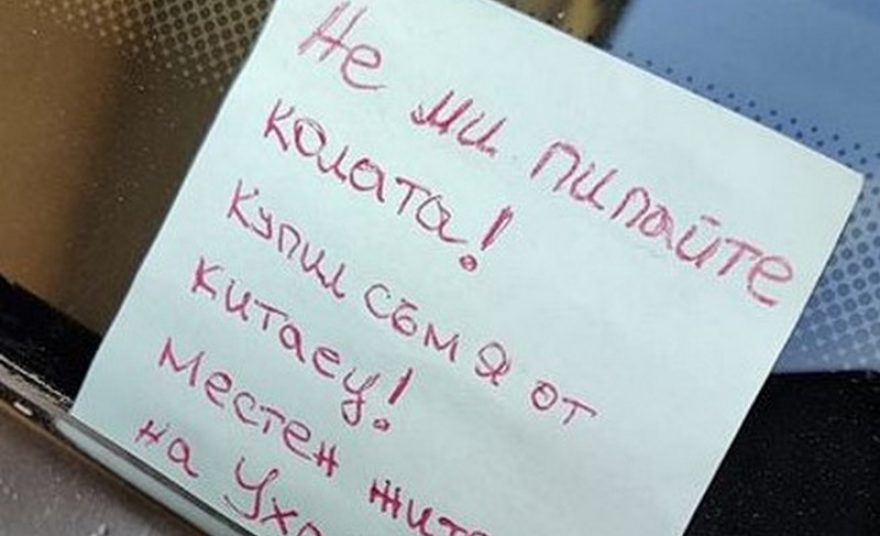 Не ми пипайте
колата!
Купил съм я от
китаец!
Местен
на